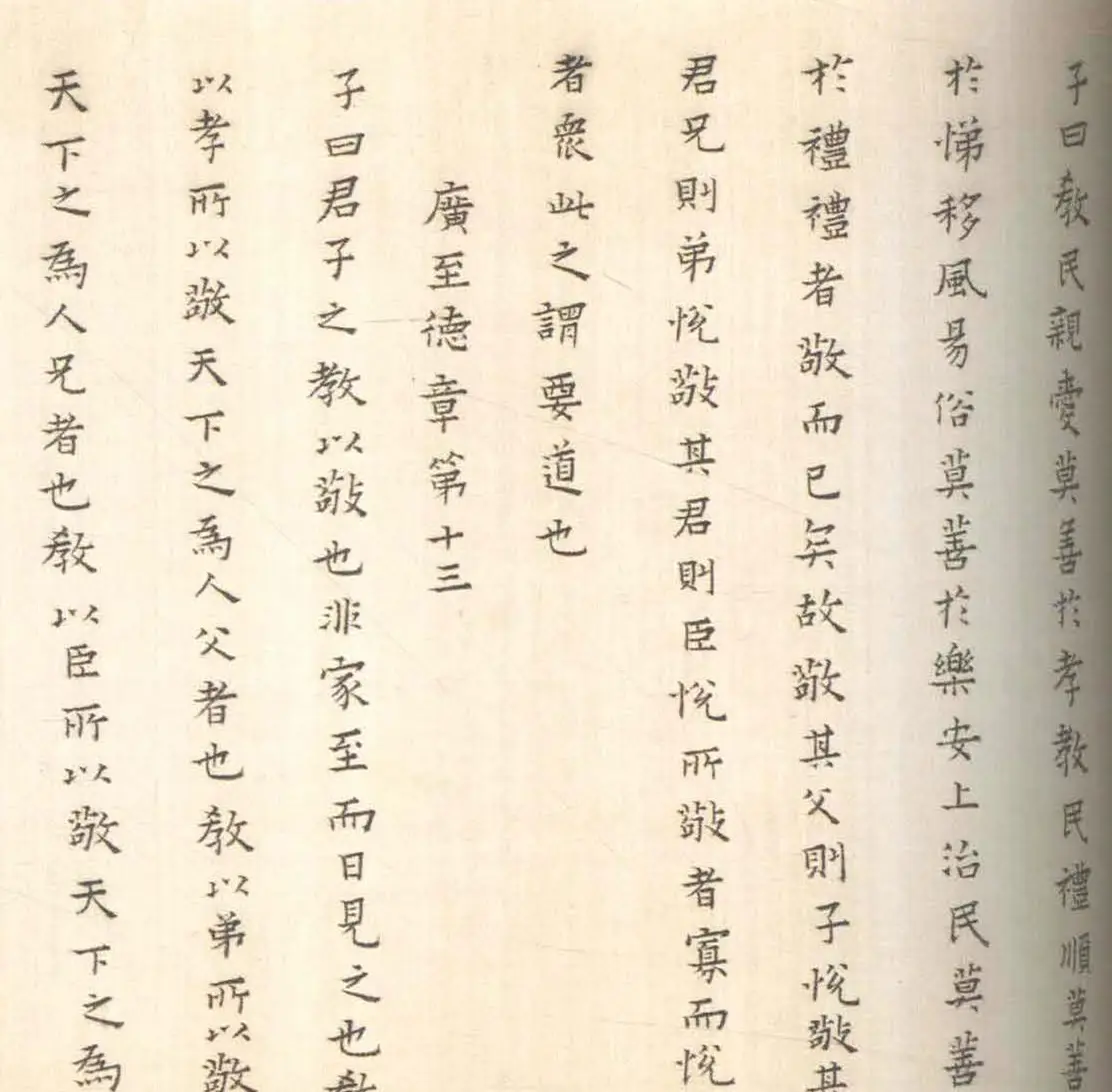 子曰教民親愛莫善於孝教民禮順莫善
於悌移風易俗莫善於樂安上治民莫善
於禮禮者敬而已矣故敬其父則子悅敬其
君兄則弟悅敬其君則臣悅所敬者寡而悅
者衆此之謂要道也
廣至德章第十三
子曰君子之教以敬也非家至而日見之也教
以孝所以敬天下之為人父者也教以弟所以敬
天下之為人兄者也教以臣所以敬天下之為